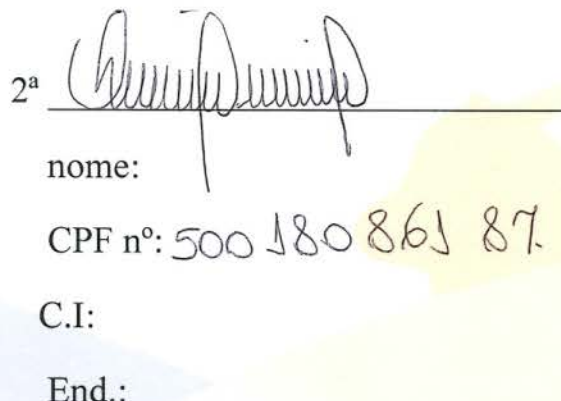 2ª
nome:
CPF nº: 500 180 861 87.
C.I:
End.: